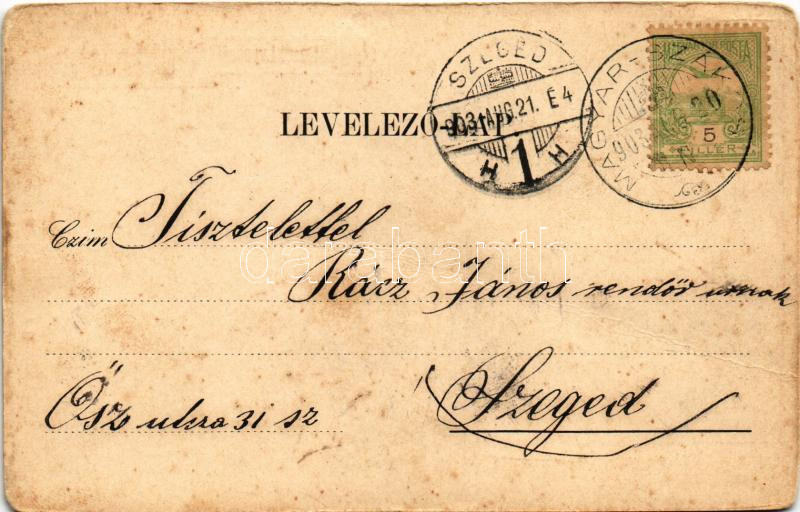 LEVELEZŐ-LAP.
SZEGED
903 AUG. 21. E 4
H 1 H
MAGYAR-SZÁK
903
20
5
FILLER
Czim Tisztelettel
Rácz János rendőr urnak
Ősz utcza 31 sz
Szeged
darabanth